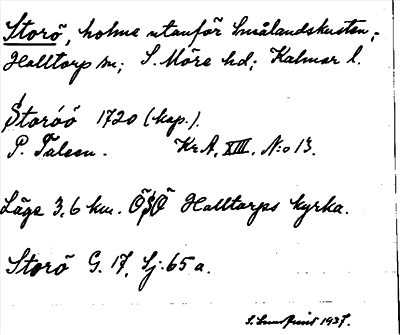 Storö, holme utanför Smålandskusten;
Halltorp sn; S. Möre hd; Kalmar l.
Storöö 1720 (kop.).
P. Taleen. Kr.A. XIII. N:o 13.
Läge 3,6 km. ÖSÖ Halltorps kyrka.
Storö G. 17, Sj. 65 a.
S. Lundquist 1937.